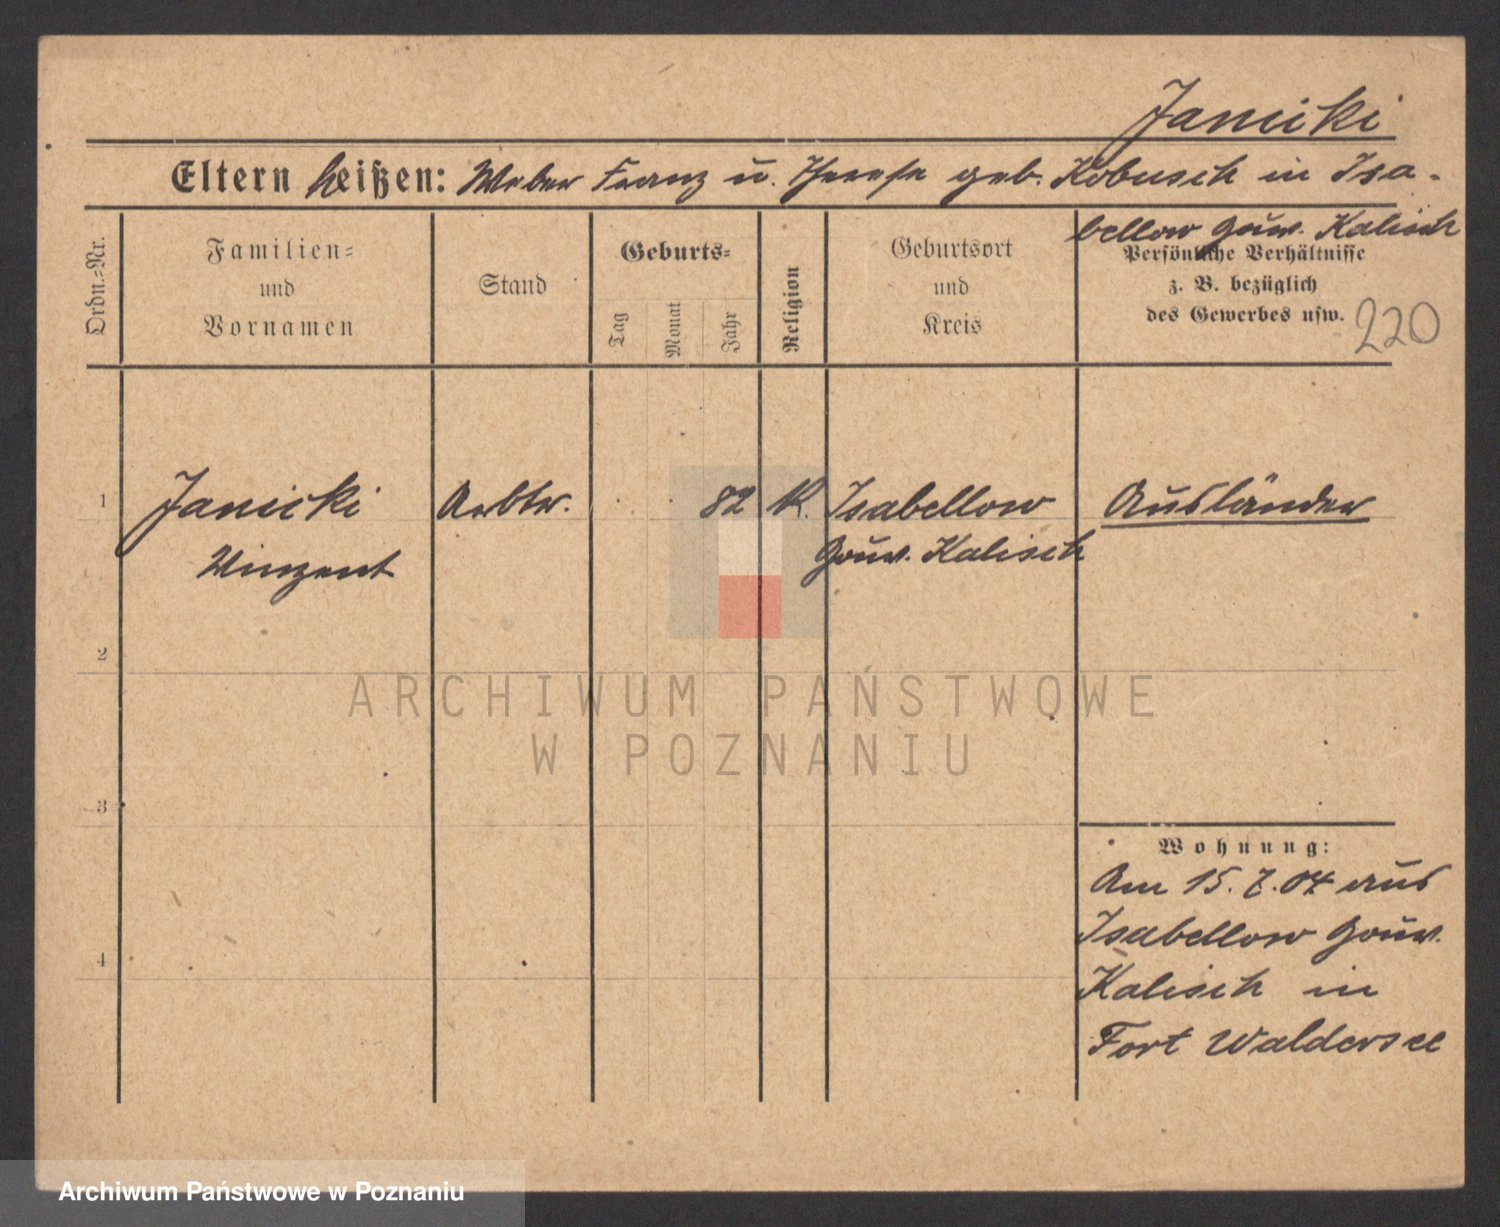 Janicki
Eltern heißen: Weber Franz u. Therese geb. Kobusch in Isa-
bellow Gouv. Kalisch
Ordn.=Nr.
Familien=
und
Vornamen
Stand
Geburts=
Tag
Monat
Jahr
Religion
Geburtsort
und
Kreis
Persönliche Verhältnisse
z. B. bezüglich
des Gewerbes usw.
220
1 Janicki Arbtr. . . 82 K. Isabellow Ausländer
Winzent Gouv. Kalisch
2
3
4
Wohnung:
Am 15. 7. 04 aus
Isabellow Gouv.
Kalisch in
Fort Waldersee
ARCHIWUM PAŃSTWOWE
W POZNANIU
Archiwum Państwowe w Poznaniu